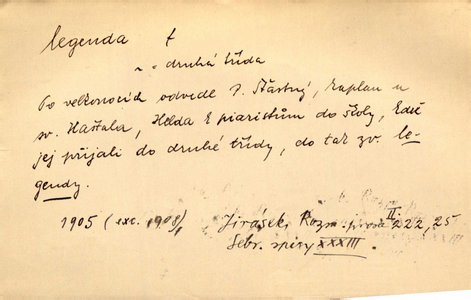 legenda f
~ = druhá třída
Po velkonocích odvedl P. Šťastný, kaplan u
sv. Haštala, Helda k piaristům do školy, kdež
jej přijali do druhé třídy, do tak zv. le-
gendy.
1905 (exc. 1908), Jirásek, Rozm. prosa II. 222, 25
Sebr. spisy XXXIII